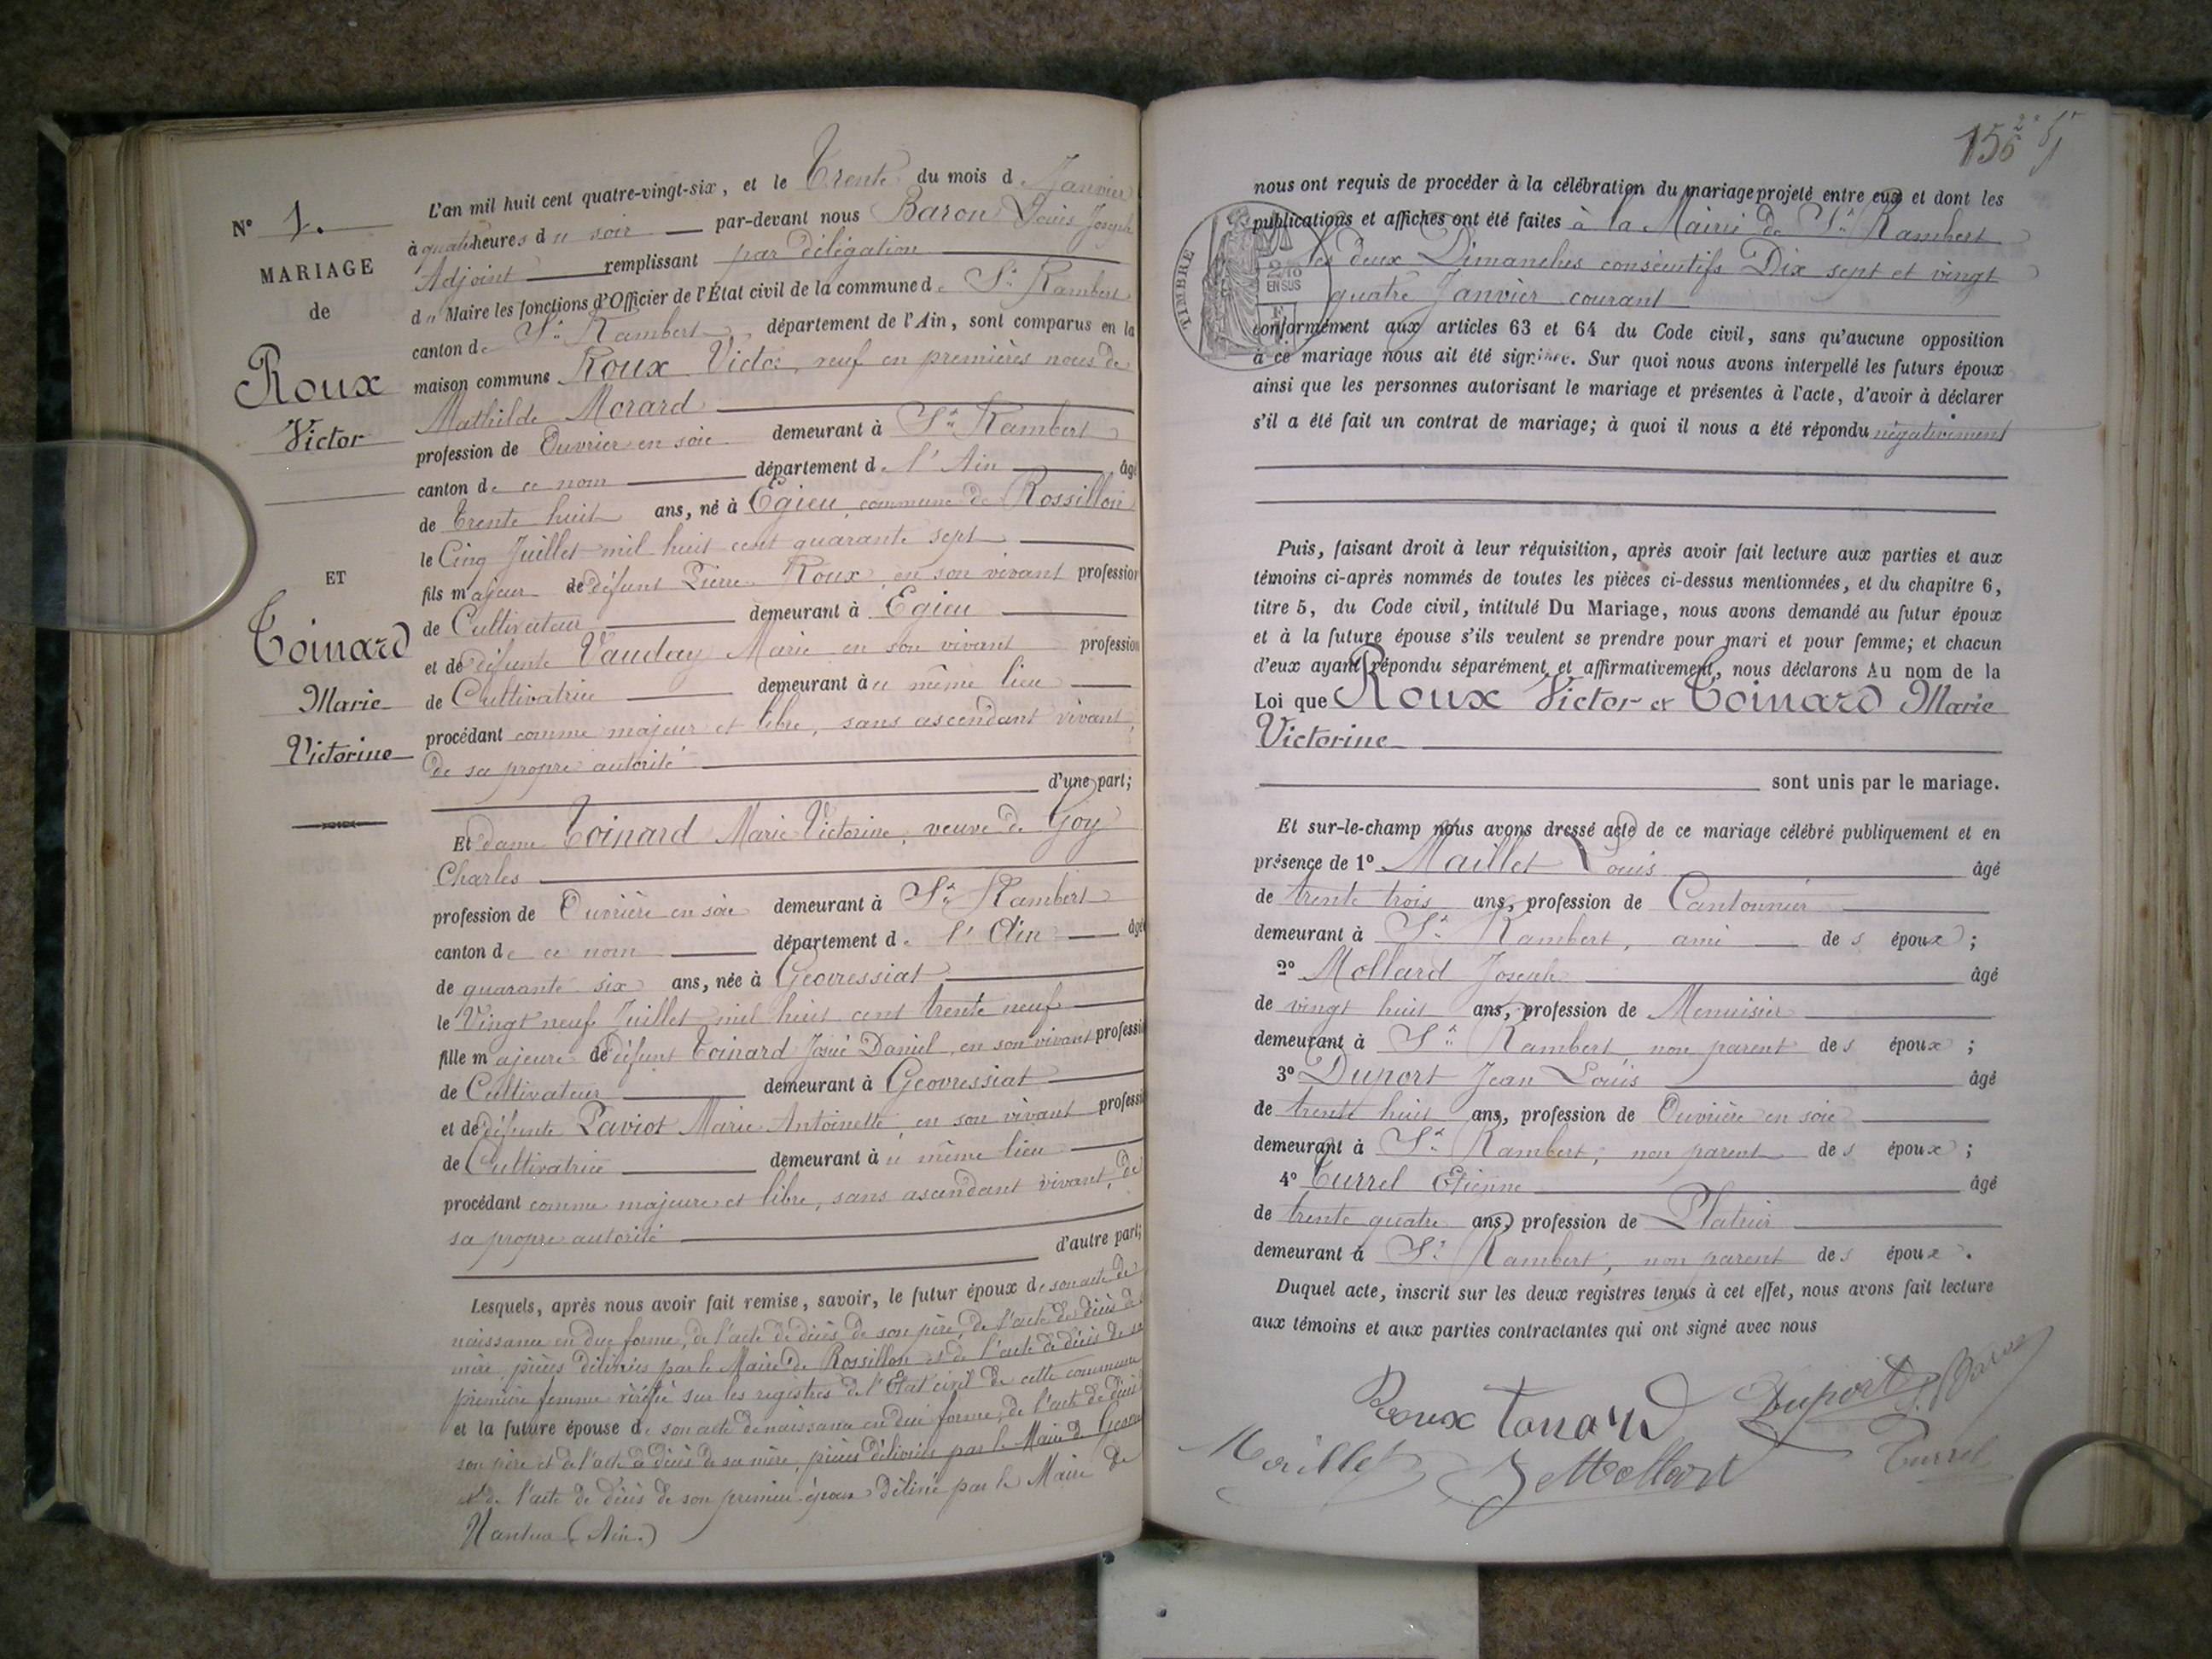 N° 1.
MARIAGE
de
Roux
Victor
ET
Toinard
Marie
Victorine
L'an mil huit cent quatre-vingt-six, et le Trente du mois d Janvier
à quatre heures du soir par-devant nous Baron Louis Joseph
Adjoint remplissant par délégation
du Maire les fonctions d'Officier de l'État civil de la commune de St Rambert
canton de St Rambert département de l'Ain, sont comparus en la
maison commune Roux Victor, veuf en premières noces de
Mathilde Morard
profession de Ouvrier en soie demeurant à St Rambert
canton de ce nom département de l'Ain âgé
de Trente huit ans, né à Egieu, commune de Rossillon
le Cinq Juillet mil huit cent quarante sept
fils majeur de défunt Pierre Roux en son vivant profession
de Cultivateur demeurant à Egieu
et de défunte Vauday Marie en son vivant profession
de Cultivatrice demeurant à u même lieu
procédant comme majeur et libre, sans ascendant vivant,
de sa propre autorité
d'une part;
Et dame Toinard Marie Victorine, veuve de Goy
Charles
profession de Ouvrière en soie demeurant à St Rambert
canton de ce nom département de l'Ain âgé
de quarante six ans, née à Geovressiat
le Vingt neuf Juillet mil huit cent trente neuf
fille majeure de défunt Toinard Josué Daniel, en son vivant professi
de Cultivateur demeurant à Geovressiat
et de défunte Paviot Marie Antoinette, en son vivant professi
de Cultivatrice demeurant à u même lieu
procédant comme majeure et libre, sans ascendant vivant, de
sa propre autorité
d'autre part;
Lesquels, après nous avoir fait remise, savoir, le futur époux de son acte de
naissance en due forme, de l'acte de décès de son père, de l'acte de décès de
mère, pièces délivrées par le Maire de Rossillon et de l'acte de décès de sa
première femme vérifié sur les registres de l'Etat civil de cette commune
et la future épouse de son acte de naissance en due forme, de l'acte de décès
son père et de l'acte de décès de sa mère, pièces délivrées par le Maire de Geovre
et de l'acte de décès de son premier époux délivré par le Maire de
Nantua (Ain.)
156
nous ont requis de procéder à la célébration du mariage projeté entre eux et dont les
publications et affiches ont été faites à la Mairie de St Rambert
les deux Dimanches consécutifs Dix sept et vingt
quatre Janvier courant
TIMBRE
2/10
EN SUS
conformément aux articles 63 et 64 du Code civil, sans qu'aucune opposition
à ce mariage nous ait été signifiée. Sur quoi nous avons interpellé les futurs époux
ainsi que les personnes autorisant le mariage et présentes à l'acte, d'avoir à déclarer
s'il a été fait un contrat de mariage; à quoi il nous a été répondu négativement
Puis, faisant droit à leur réquisition, après avoir fait lecture aux parties et aux
témoins ci-après nommés de toutes les pièces ci-dessus mentionnées, et du chapitre 6,
titre 5, du Code civil, intitulé Du Mariage, nous avons demandé au futur époux
et à la future épouse s'ils veulent se prendre pour mari et pour femme; et chacun
d'eux ayant répondu séparément et affirmativement, nous déclarons Au nom de la
Loi que Roux Victor et Toinard Marie
Victorine
sont unis par le mariage.
Et sur-le-champ nous avons dressé acte de ce mariage célébré publiquement et en
présence de 1° Maillet Louis âgé
de trente trois ans, profession de Cantonnier
demeurant à St Rambert, ami des époux;
2° Mollard Joseph âgé
de vingt huit ans, profession de Menuisier
demeurant à St Rambert non parent des époux;
3° Duport Jean Louis âgé
de trente huit ans, profession de Ouvrière en soie
demeurant à St Rambert, non parent des époux;
4° Turrel Etienne âgé
de trente quatre ans, profession de Platrier
demeurant à St Rambert, non parent des époux.
Duquel acte, inscrit sur les deux registres tenus à cet effet, nous avons fait lecture
aux témoins et aux parties contractantes qui ont signé avec nous
Roux Tonard Duport Baron
Maillet J Mollard Turrel